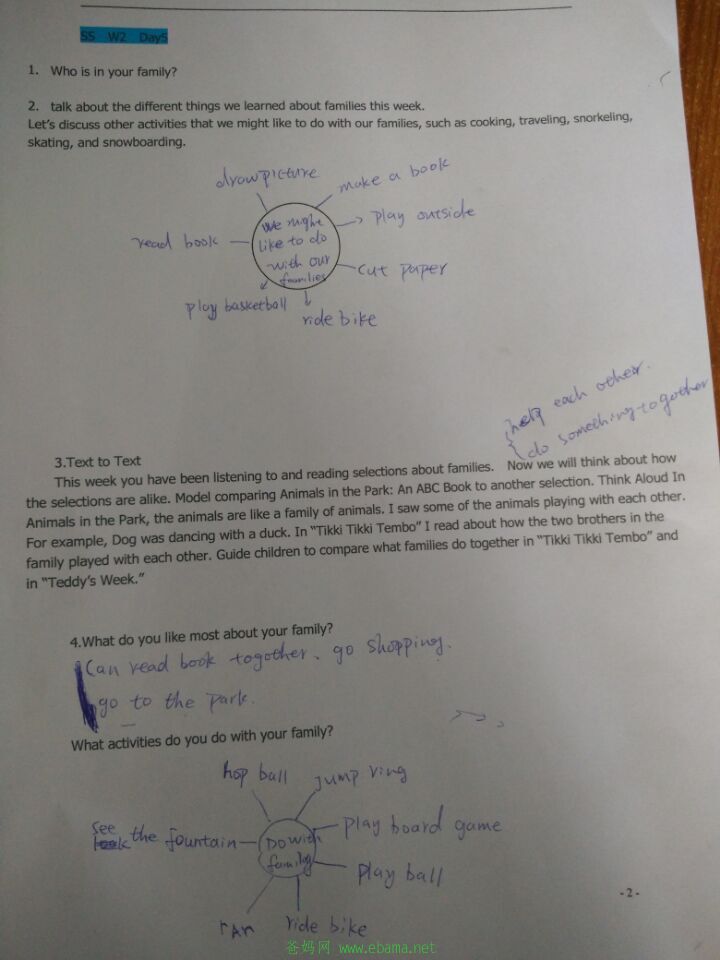 SS W2 Day5
1. Who is in your family?
2. talk about the different things we learned about families this week.
Let's discuss other activities that we might like to do with our families, such as cooking, traveling, snorkeling,
skating, and snowboarding.
draw picture
make a book
play outside
read book
we might
like to do
with our
families
cut paper
play basketball
ride bike
help each other.
do something togother
3.Text to Text
This week you have been listening to and reading selections about families. Now we will think about how
the selections are alike. Model comparing Animals in the Park: An ABC Book to another selection. Think Aloud In
Animals in the Park, the animals are like a family of animals. I saw some of the animals playing with each other.
For example, Dog was dancing with a duck. In "Tikki Tikki Tembo" I read about how the two brothers in the
family played with each other. Guide children to compare what families do together in "Tikki Tikki Tembo" and
in "Teddy's Week."
4.What do you like most about your family?
Can read book togother. go shopping.
go to the park.
What activities do you do with your family?
hop ball
jump ring
see the fountain
Do with
family
play board game
play ball
ran
ride bike
-2-
爸妈网 www.ebama.net